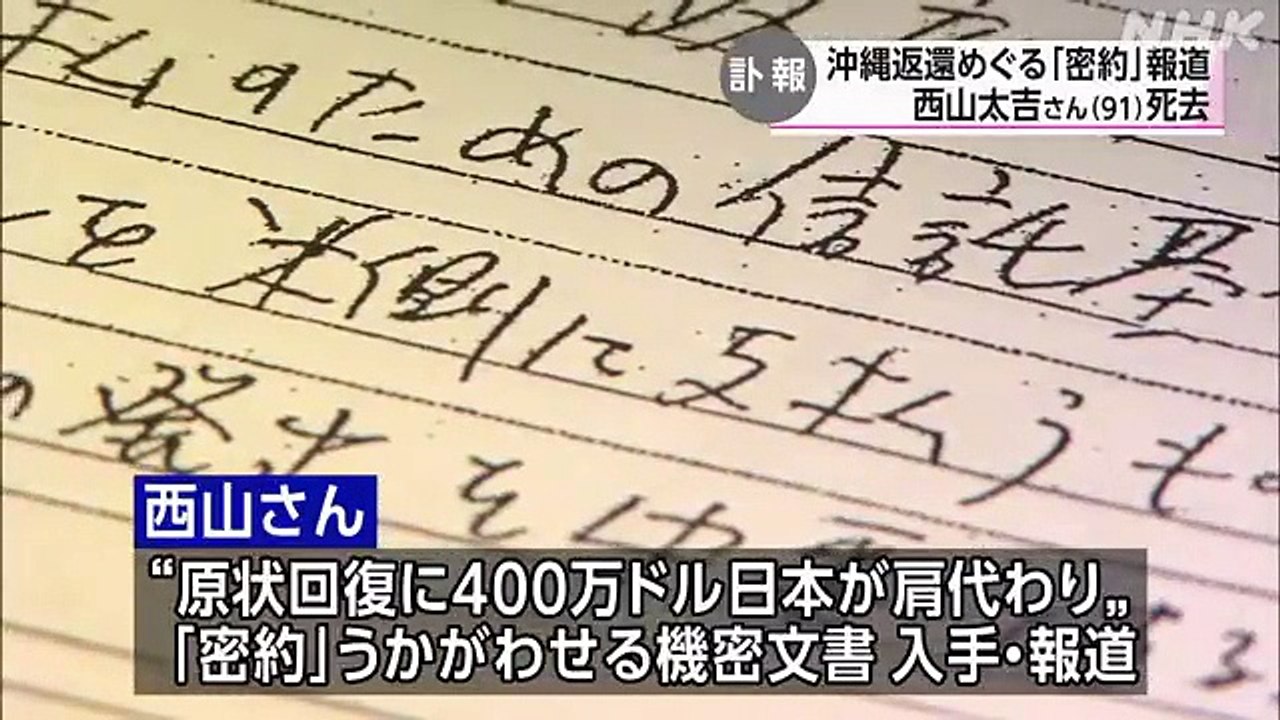 NHK
訃報
沖縄返還めぐる「密約」報道
西山太吉さん(91)死去
のための信託基
を米側に支払うも
の発出を
西山さん
“原状回復に400万ドル日本が肩代わり„
「密約」うかがわせる機密文書 入手・報道